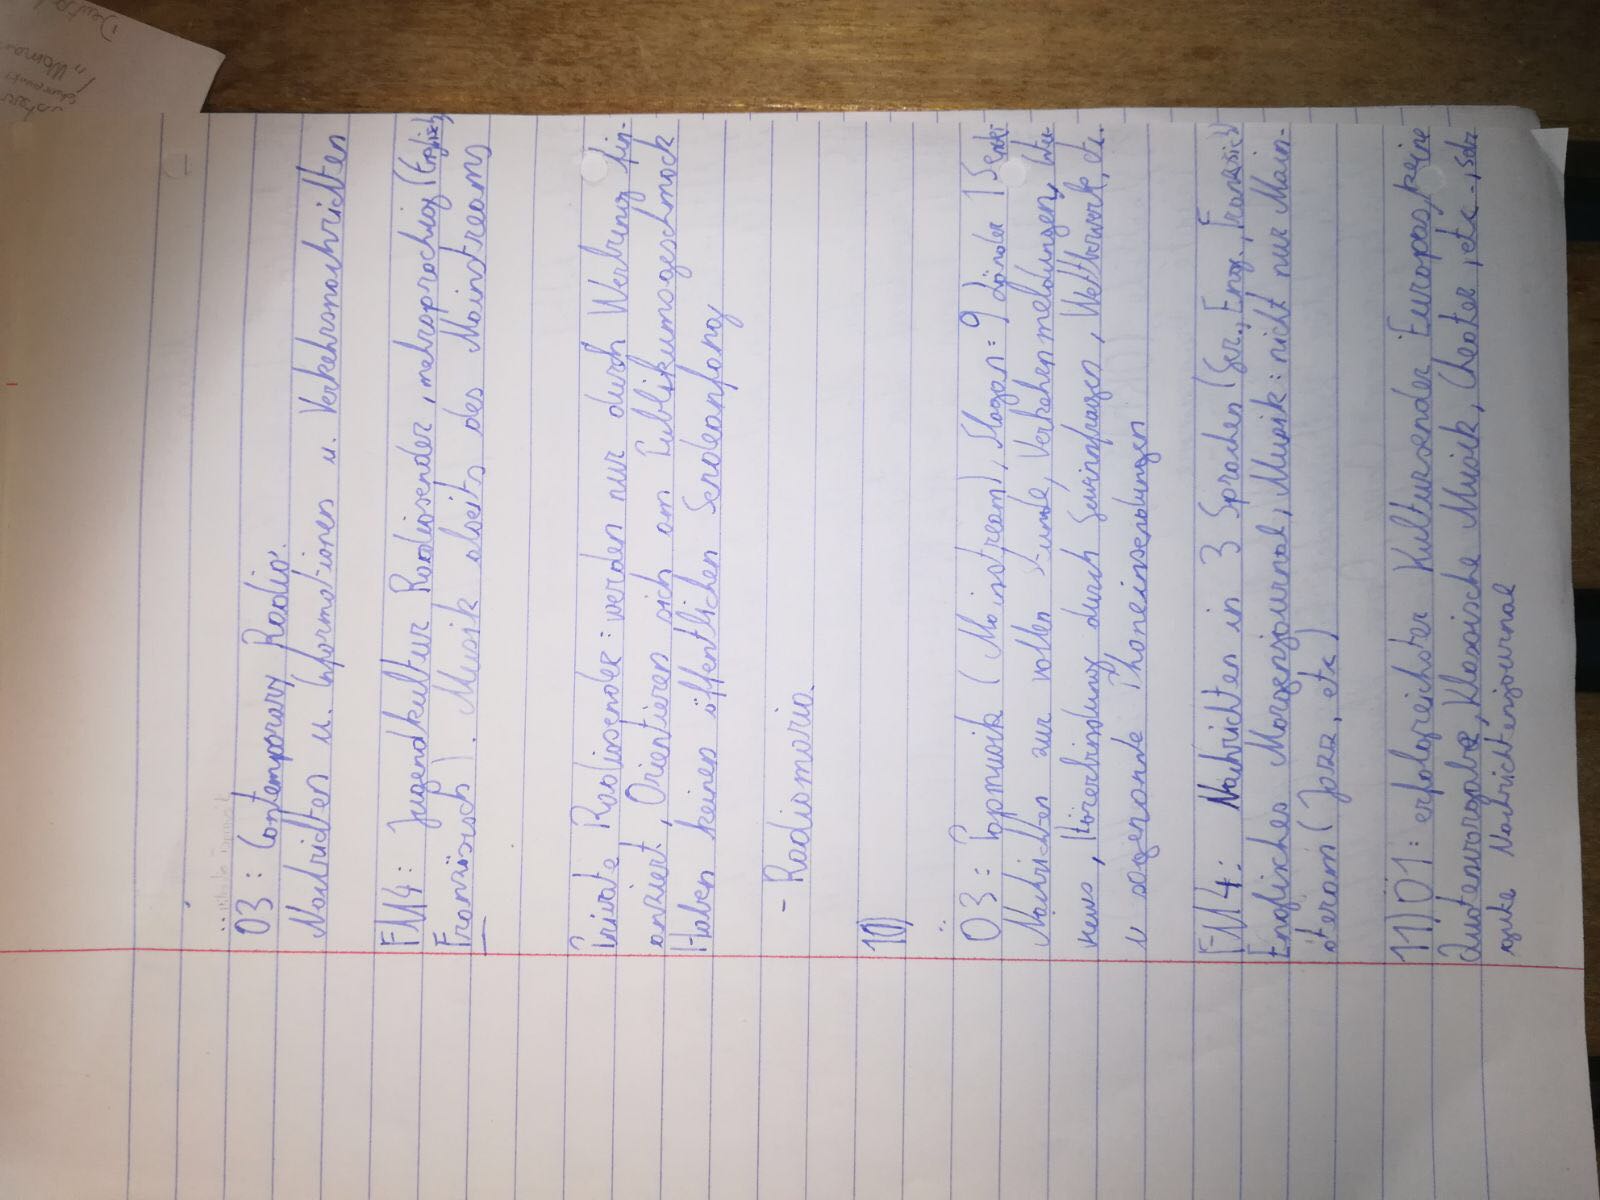 Ö3: Contemporary Radio.
Nachrichten u. Informationen u. Verkehrsnachrichten
FM4: Jugendkultur Radiosender, mehrsprachig (Englisch,
Französisch). Musik abseits des Mainstreams
Private Radiosender: werden nur durch Werbung fin-
anziert, Orientieren sich am Publikumsgeschmack
Haben keinen öffentlichen Sendeanfang
- Radiomaria.
10)
Ö3: Popmusik (Mainstream), Slogan: 9 Länder 1 Sender
Nachrichten zur vollen Stunde, Verkehrsmeldungen, Inter-
views, Hörerbindung durch Gewinnfragen, Wettbewerbe, etc.
u sogenannte Phoneinsendungen
FM4: Nachrichten in 3 Sprachen (Ger., Eng., Französisch)
Englisches Morgenjournal, Musik: nicht nur Main-
steram (Jazz, etc)
11) Ö1: erfolgreichster Kultursender Europas, keine
Quotenvorgabe, Klassische Musik, Theater, etc.,
gute Nachrichtenjournal
Woman